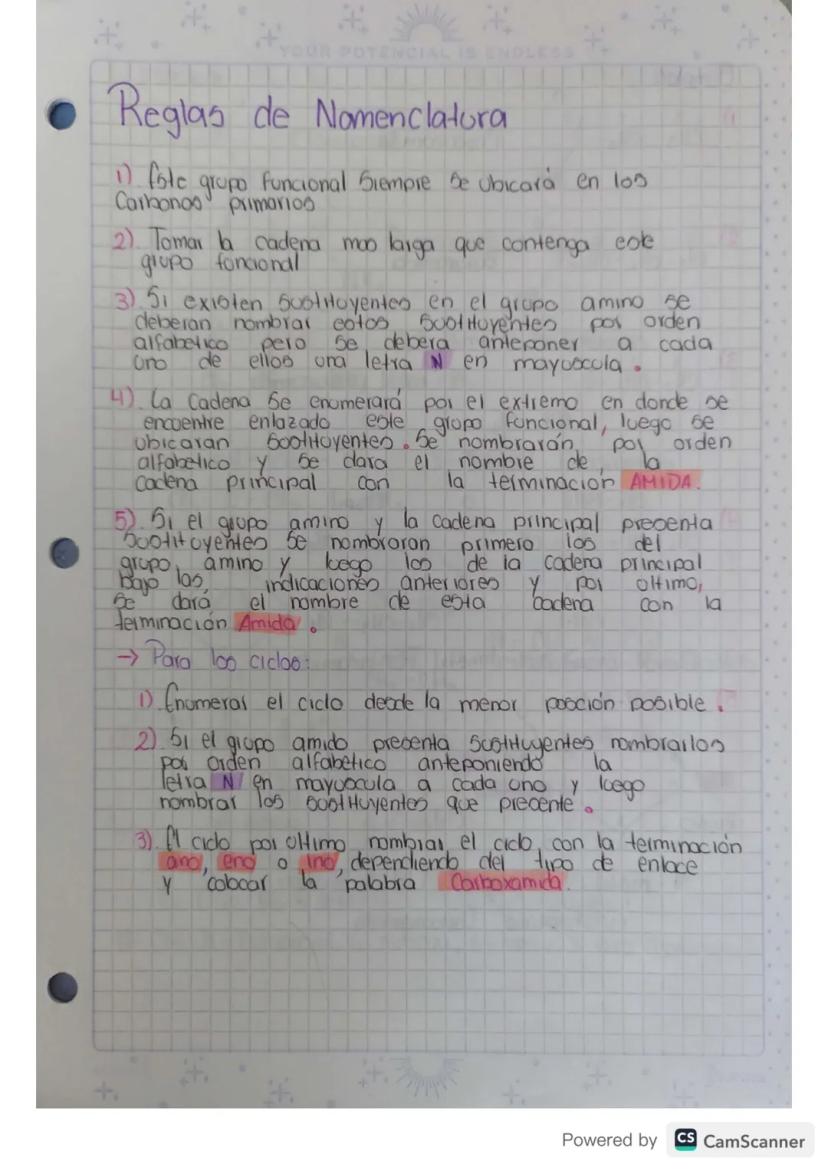 YOUR POTENCIAL IS ENDLESS
Reglas de Nomenclatura
1) Este grupo funcional siempre se ubicará en los
Carbonos primarios
2) Tomar la cadena mas larga que contenga este
grupo foncional
3) Si existen sustituyentes en el grupo amino se
deberan nombrar estos sustituyentes por orden
alfabetico pero se debera anteponer a cada
uno de ellos una letra N en mayuscula.
4) La Cadena se enumerará por el extremo en donde se
encuentre enlazado este grupo funcional, luego se
ubicaran sustituyentes. Se nombrarán por orden
alfabetico y se dara el nombre de la
cadena principal con la terminación AMIDA.
5) Si el grupo amino y la cadena principal presenta
sustituyentes se nombraran primero los del
grupo amino y luego los de la cadena principal
bajo las indicaciones anteriores y por ultimo,
se dará el nombre de esta cadena con la
terminación Amida.
→ Para los ciclos:
1) Enumerar el ciclo desde la menor posición posible.
2) Si el grupo amido presenta sustituyentes nombrarlos
por orden alfabetico anteponiendo la
letra N en mayuscula a cada uno y luego
nombrar los sustituyentes que precente.
3) El ciclo por ultimo nombrar el ciclo con la terminación
ano, eno o ino, dependiendo del tipo de enlace
y colocar la palabra Carboxamida.
Powered by CS CamScanner